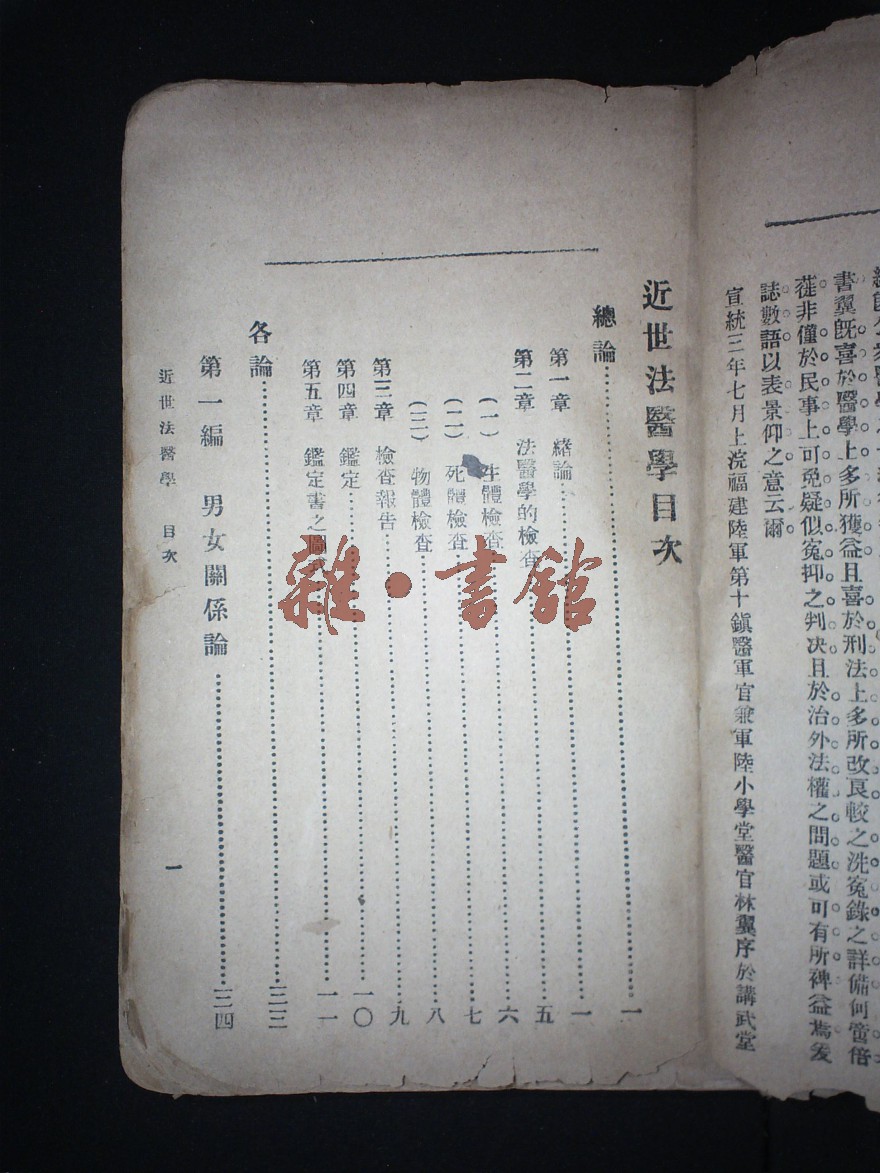 書翼旣喜於醫學上多所獲益且喜於刑法上多所改良較之洗寃錄之詳備何啻倍
蓰非僅於民事上可免疑似寃抑之判决且於治外法權之問題或可有所裨益焉爰
誌數語以表景仰之意云爾
宣統三年七月上浣福建陸軍第十鎭醫軍官兼軍陸小學堂醫官林翼序於講武堂
近世法醫學目次
總論……一
第一章 緖論……一
第二章 法醫學的檢查……五
(一) 生體檢查……六
(二) 死體檢查……七
(三) 物體檢查……八
第三章 檢查報告……九
第四章 鑑定……一〇
第五章 鑑定書之圖式……一一
各論……三三
第一編 男女關係論……三四
近世法醫學 目次
一
雜·書館